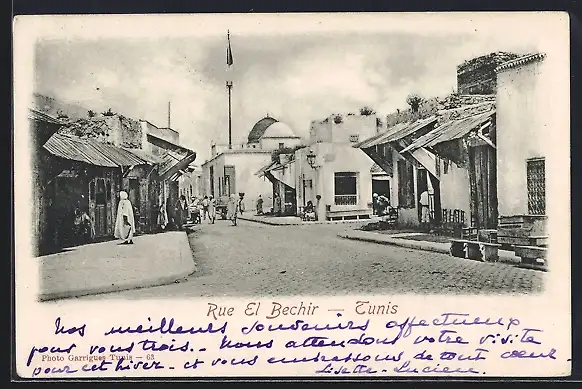 Rue El Bechir — Tunis
Nos meilleurs souvenirs affectueux
pour vous trois. - Nous attendons votre visite
Photo Garrigues Tunis — 63
pour cet hiver. et vous embrassons de tout cœur.
Lisette - Lucien.